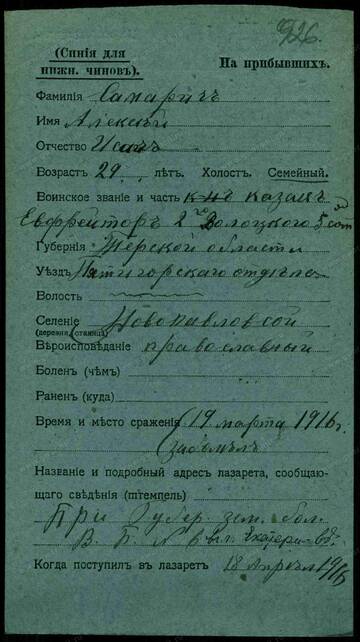 926.
(Синія для
нижн. чиновъ).
На прибывшихъ.
Фамилія Самаричъ
Имя Алексѣй
Отчество Исаічъ
Возрастъ 29 лѣтъ. Холост. Семейный.
Воинское званіе и часть казакъ
Евфрейторъ 2го Волгскаго 5 сот
Губернія Терской области
Уѣздъ Пятигорскаго отдѣла
Волость
Селеніе Новопавловской
(деревня, станица)
Вѣроисповѣданіе православный
Боленъ (чѣмъ)
Раненъ (куда)
Время и мѣсто сраженія 19 марта 1916 г
Заболѣлъ
Названіе и подробный адресъ лазарета, сообщаю-
щаго свѣдѣнія (штемпель)
При Губер. зем. бол.
В. П. № 6 въ г. Екатери
Когда поступилъ въ лазаретъ 18 Апрѣля 1916